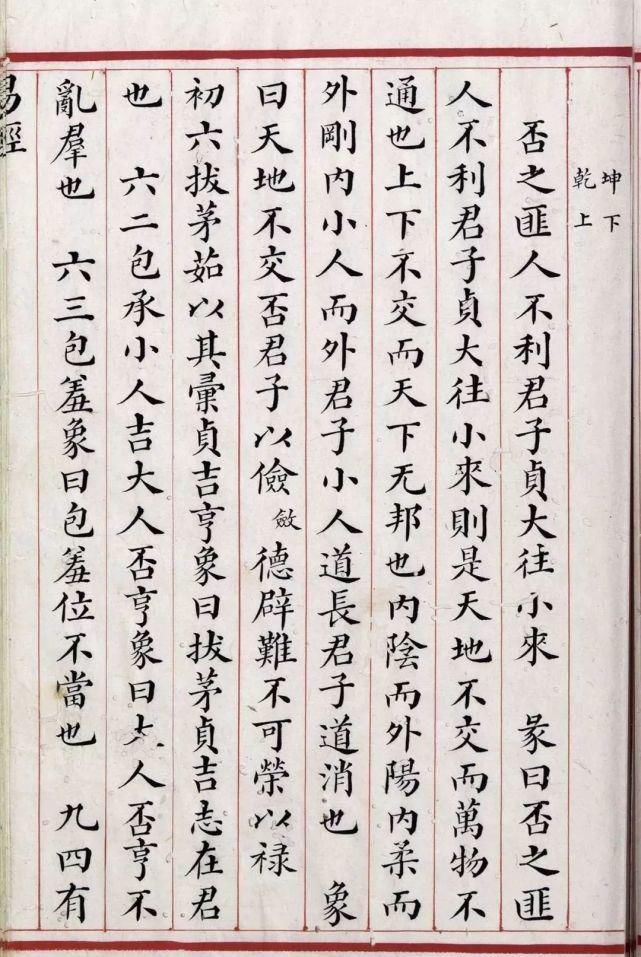 坤下
乾上
否之匪人不利君子貞大往小來　彖曰否之匪
人不利君子貞大往小來則是天地不交而萬物不
通也上下不交而天下无邦也内陰而外陽内柔而
外剛内小人而外君子小人道長君子道消也　象
曰天地不交否君子以儉斂德辟難不可榮以祿
初六拔茅茹以其彙貞吉亨象曰拔茅貞吉志在君
也　六二包承小人吉大人否亨象曰大人否亨不
亂羣也　六三包羞象曰包羞位不當也　九四有
易經